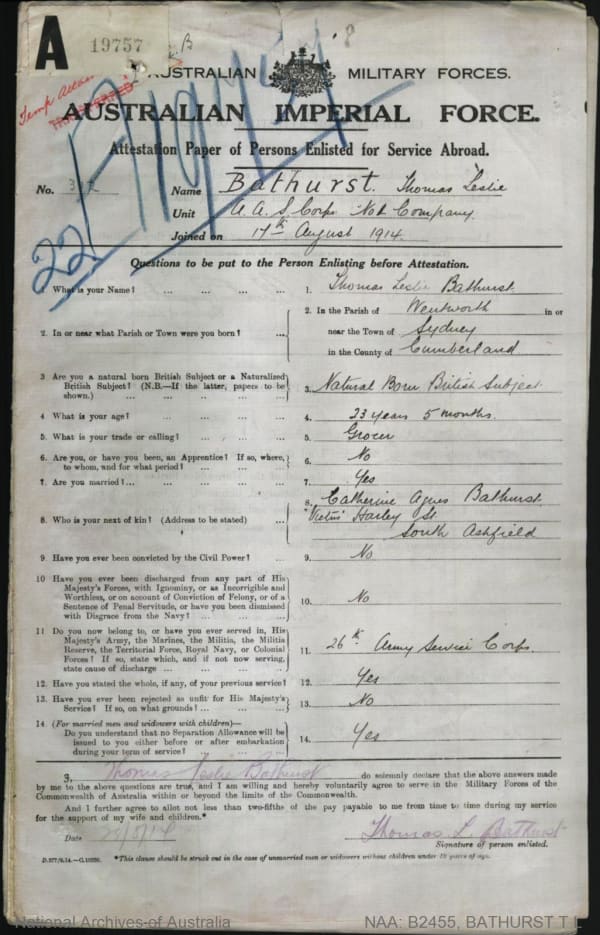 A
19757
B
8
AUSTRALIAN MILITARY FORCES.
Temp
AUSTRALIAN IMPERIAL FORCE.
Attestation Paper of Persons Enlisted for Service Abroad.
No. Name Bathurst. Thomas Leslie
Unit A.A.S. Corps Company
Joined on 17th August 1914.
221
Questions to be put to the Person Enlisting before Attestation.
1. What is your Name? ... ... ... ... 1. Thomas Leslie Bathurst
2. In or near what Parish or Town were you born? ... 2. In the Parish of Wentworth in or
near the Town of Sydney
in the County of Cumberland
3 Are you a natural born British Subject or a Naturalized
British Subject? (N.B.—If the latter, papers to be
shown.) ... ... ... ... 3. Natural Born British Subject.
4 What is your age? ... ... ... ... 4. 23 years 5 months.
5. What is your trade or calling? ... ... ... 5. Grocer
6. Are you, or have you been, an Apprentice? If so, where,
to whom, and for what period? ... ... ... 6. No
7. Are you married?... ... ... ... ... 7. Yes
8. Who is your next of kin? (Address to be stated) ... 8. Catherine Agnes Bathurst.
Harley St
South Ashfield
9 Have you ever been convicted by the Civil Power? ... 9. No
10 Have you ever been discharged from any part of His
Majesty's Forces, with Ignominy, or as Incorrigible and
Worthless, or on account of Conviction of Felony, or of a
Sentence of Penal Servitude, or have you been dismissed
with Disgrace from the Navy? ... ... ... 10. No
11 Do you now belong to, or have you ever served in, His
Majesty's Army, the Marines, the Militia, the Militia
Reserve, the Territorial Force, Royal Navy, or Colonial
Forces? If so, state which, and if not now serving,
state cause of discharge ... ... ... 11. 26th Army Service Corps.
12. Have you stated the whole, if any, of your previous service? 12. Yes
13. Have you ever been rejected as unfit for His Majesty's
Service? If so, on what grounds? ... ... ... 13. No
14 (For married men and widowers with children)—
Do you understand that no Separation Allowance will be
issued to you either before or after embarkation
during your term of service? ... ... ... 14. Yes
I, Thomas Leslie Bathurst do solemnly declare that the above answers made
by me to the above questions are true, and I am willing and hereby voluntarily agree to serve in the Military Forces of the
Commonwealth of Australia within or beyond the limits of the Commonwealth.
And I further agree to allot not less than two-fifths of the pay payable to me from time to time during my service
for the support of my wife and children.*
Date Thomas L. Bathurst
Signature of person enlisted.
*This clause should be struck out in the case of unmarried men or widowers without children under 18 years of age.
National Archives of Australia NAA: B2455, BATHURST T L